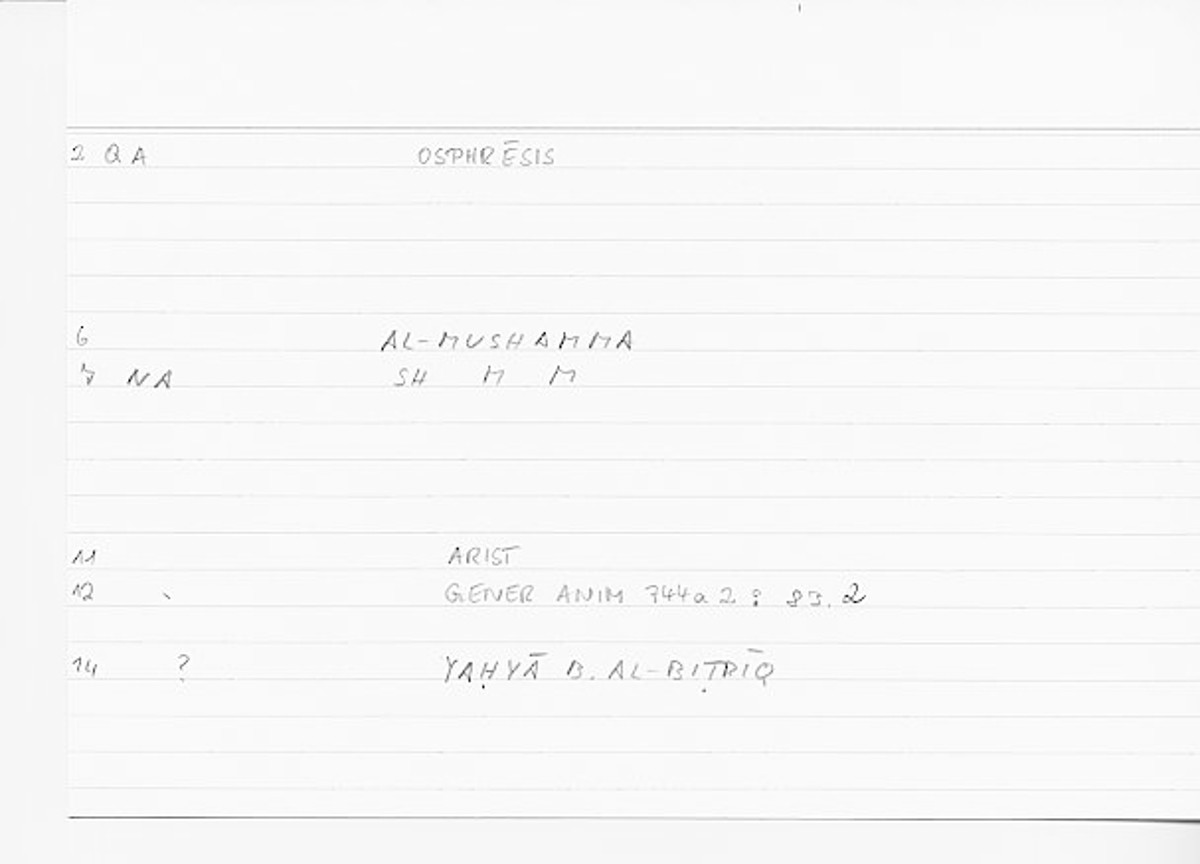 2 Q A OSPHRĒSIS
6 AL-MUSHAMMA
7 NA SH M M
11 ARIST
12 GENER ANIM 744a 2 : 83.2
14 ? YAḤYĀ B. AL-BIṬRĪQ